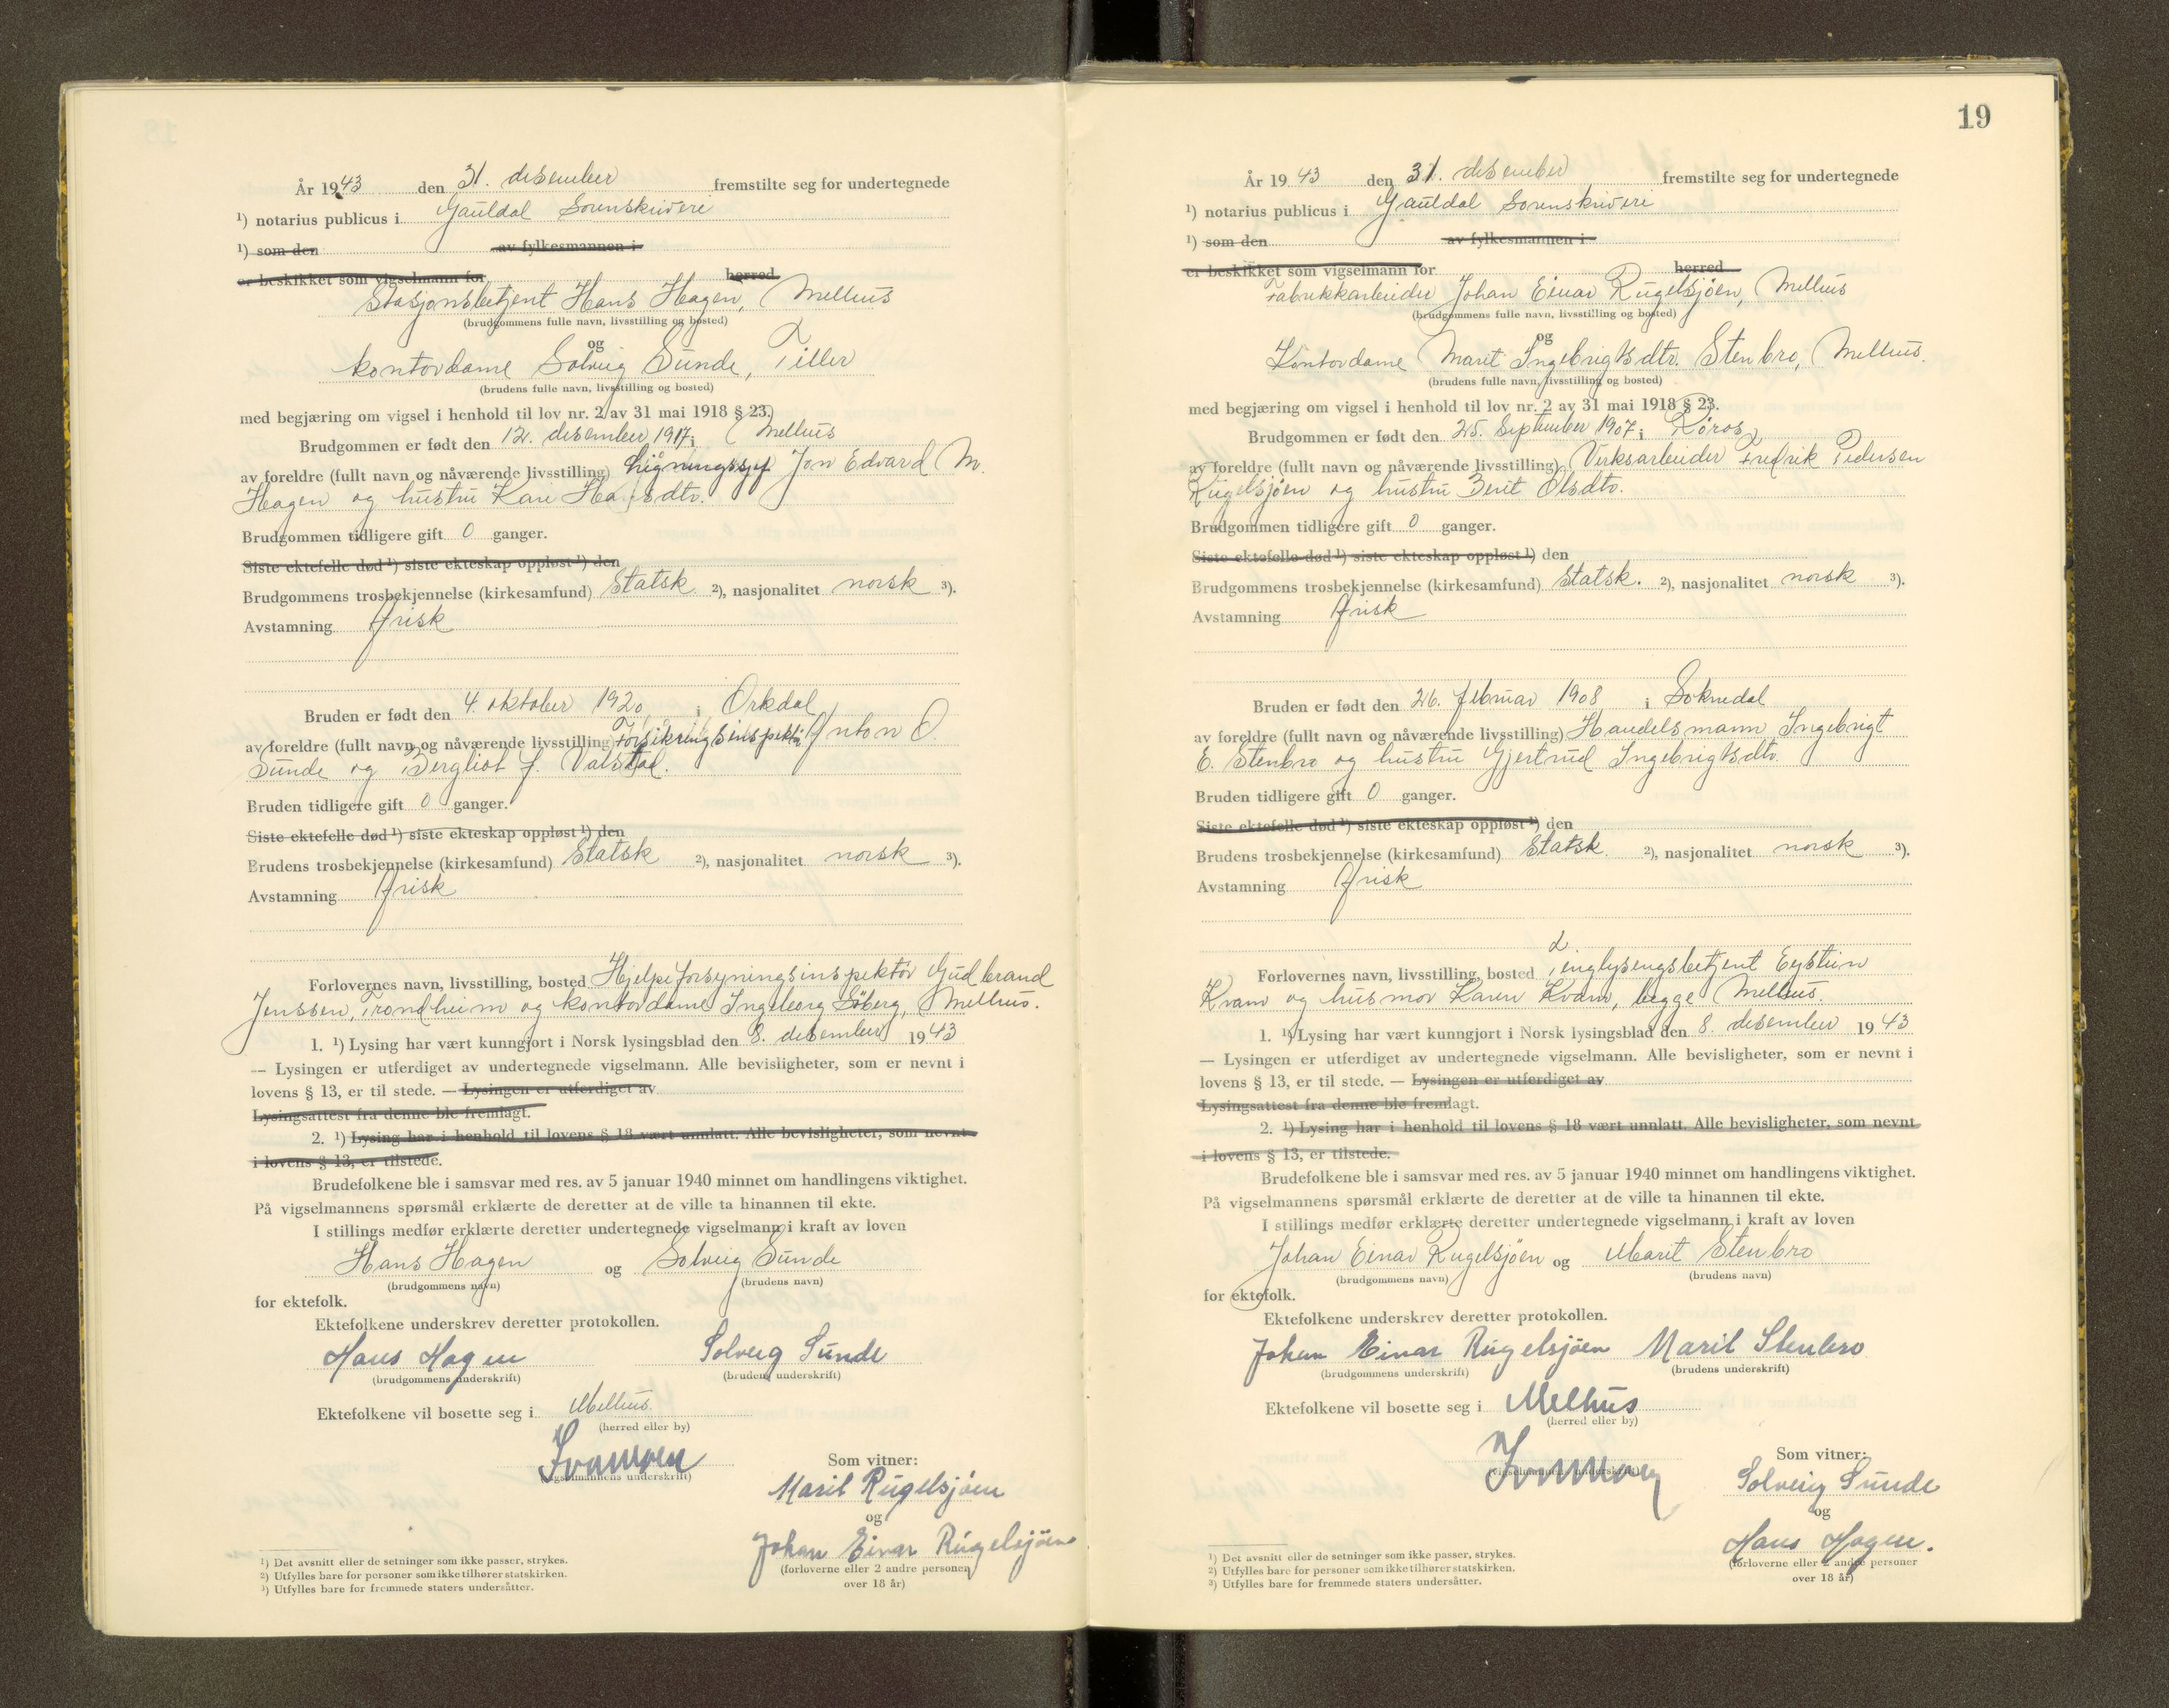 År 1943 den 31. desember fremstilte seg for undertegnede
¹) notarius publicus i Gauldal Sorenskriveri
¹) som den av fylkesmannen i
er beskikket som vigselmann for herred
Stasjonsbetjent Hans Hagen, Melhus
(brudgommens fulle navn, livsstilling og bosted)
og
kontordame Solveig Sunde, Tiller
(brudens fulle navn, livsstilling og bosted)
med begjæring om vigsel i henhold til lov nr. 2 av 31 mai 1918 § 23.
Brudgommen er født den 12. desember 1917 i Melhus
av foreldre (fullt navn og nåværende livsstilling) Ligningssjef Jon Edvard M.
Hagen og hustru Kari Hansdtr.
Brudgommen tidligere gift 0 ganger.
Siste ektefelle død ¹) siste ekteskap oppløst ¹) den
Brudgommens trosbekjennelse (kirkesamfund) Statsk. ²), nasjonalitet norsk ³).
Avstamning Arisk
Bruden er født den 4. oktober 1920 i Orkdal
av foreldre (fullt navn og nåværende livsstilling) Forsikringsinspektør Anton O.
Sunde og Bergliot f. Valstad.
Bruden tidligere gift 0 ganger.
Siste ektefelle død ¹) siste ekteskap oppløst ¹) den
Brudens trosbekjennelse (kirkesamfund) Statsk ²), nasjonalitet norsk ³).
Avstamning Arisk
Forlovernes navn, livsstilling, bosted Hjelpeforsyningsinspektør Gudbrand
Jenssen, Trondheim og kontordame Ingeborg Söberg, Melhus.
1. ¹) Lysing har vært kunngjort i Norsk lysingsblad den 8. desember 1943
— Lysingen er utferdiget av undertegnede vigselmann. Alle bevisligheter, som er nevnt i
lovens § 13, er til stede. — Lysingen er utferdiget av
Lysingsattest fra denne ble fremlagt.
2. ¹) Lysing har i henhold til lovens § 18 vært unnlatt. Alle bevisligheter, som nevnt
i lovens § 13, er tilstede.
Brudefolkene ble i samsvar med res. av 5 januar 1940 minnet om handlingens viktighet.
På vigselmannens spørsmål erklærte de deretter at de ville ta hinannen til ekte.
I stillings medfør erklærte deretter undertegnede vigselmann i kraft av loven
Hans Hagen og Solveig Sunde
(brudgommens navn) (brudens navn)
for ektefolk.
Ektefolkene underskrev deretter protokollen.
Hans Hagen Solveig Sunde
(brudgommens underskrift) (brudens underskrift)
Ektefolkene vil bosette seg i Melhus.
(herred eller by)
(vigselmannens underskrift)
Som vitner:
Marit Rugelsjöen
og
Johan Einar Rugelsjöen
(forloverne eller 2 andre personer
over 18 år)
¹) Det avsnitt eller de setninger som ikke passer, strykes.
²) Utfylles bare for personer som ikke tilhører statskirken.
³) Utfylles bare for fremmede staters undersåtter.
19
År 1943 den 31. desember fremstilte seg for undertegnede
¹) notarius publicus i Gauldal Sorenskriveri
¹) som den av fylkesmannen i
er beskikket som vigselmann for herred
Fabrikkarbeider Johan Einar Rugelsjöen, Melhus
(brudgommens fulle navn, livsstilling og bosted)
og
Kontordame Marit Ingebrigtsdtr. Stenbro, Melhus.
(brudens fulle navn, livsstilling og bosted)
med begjæring om vigsel i henhold til lov nr. 2 av 31 mai 1918 § 23.
Brudgommen er født den 25. September 1907 i Röros
av foreldre (fullt navn og nåværende livsstilling) Verksarbeider Fredrik Pedersen
Rugelsjöen og hustru Berit Olsdtr.
Brudgommen tidligere gift 0 ganger.
Siste ektefelle død ¹) siste ekteskap oppløst ¹) den
Brudgommens trosbekjennelse (kirkesamfund) Statsk. ²), nasjonalitet norsk ³).
Avstamning Arisk
Bruden er født den 26. februar 1908 i Soknedal
av foreldre (fullt navn og nåværende livsstilling) Handelsmann Ingebrigt
E. Stenbro og hustru Gjertrud Ingebrigtsdtr.
Bruden tidligere gift 0 ganger.
Siste ektefelle død ¹) siste ekteskap oppløst ¹) den
Brudens trosbekjennelse (kirkesamfund) Statsk. ²), nasjonalitet norsk ³).
Avstamning Arisk
Forlovernes navn, livsstilling, bosted Tinglysingsbetjent Eystein
Kvam og husmor Karen Kvam, begge Melhus.
1. ¹) Lysing har vært kunngjort i Norsk lysingsblad den 8. desember 1943
— Lysingen er utferdiget av undertegnede vigselmann. Alle bevisligheter, som er nevnt i
lovens § 13, er til stede. — Lysingen er utferdiget av
Lysingsattest fra denne ble fremlagt.
2. ¹) Lysing har i henhold til lovens § 18 vært unnlatt. Alle bevisligheter, som nevnt
i lovens § 13, er tilstede.
Brudefolkene ble i samsvar med res. av 5 januar 1940 minnet om handlingens viktighet.
På vigselmannens spørsmål erklærte de deretter at de ville ta hinannen til ekte.
I stillings medfør erklærte deretter undertegnede vigselmann i kraft av loven
Johan Einar Rugelsjöen og Marit Stenbro
(brudgommens navn) (brudens navn)
for ektefolk.
Ektefolkene underskrev deretter protokollen.
Johan Einar Rugelsjöen Marit Stenbro
(brudgommens underskrift) (brudens underskrift)
Ektefolkene vil bosette seg i Melhus
(herred eller by)
(vigselmannens underskrift)
Som vitner:
Solveig Sunde
og
Hans Hagen.
(forloverne eller 2 andre personer
over 18 år)
¹) Det avsnitt eller de setninger som ikke passer, strykes.
²) Utfylles bare for personer som ikke tilhører statskirken.
³) Utfylles bare for fremmede staters undersåtter.